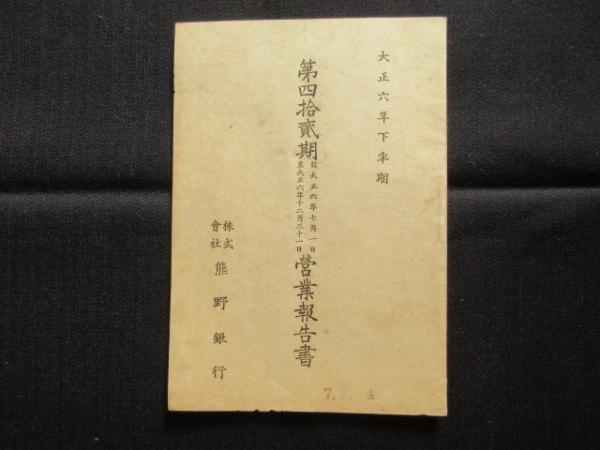 大正六年下半期
第四拾貳期自大正六年七月一日至大正六年十二月三十一日營業報告書
株式會社熊野銀行